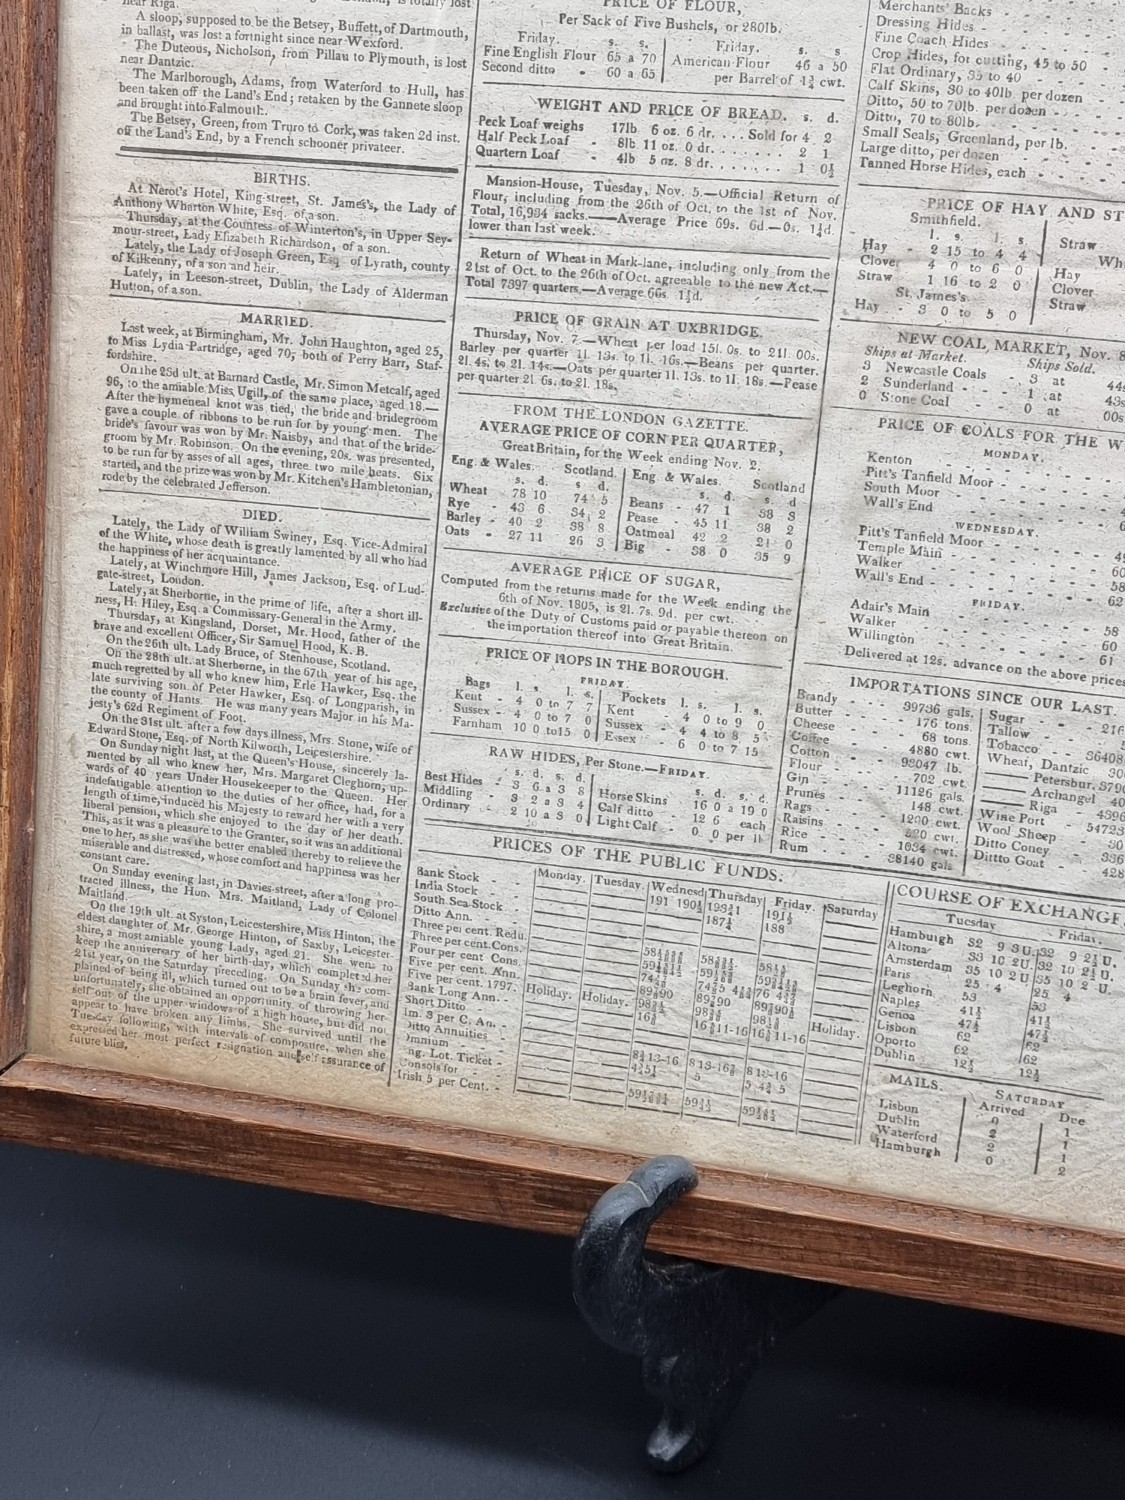 near Riga.
A sloop, supposed to be the Betsey, Buffett, of Dartmouth,
in ballast, was lost a fortnight since near Wexford.
The Duteous, Nicholson, from Pillau to Plymouth, is lost
near Dantzic.
The Marlborough, Adams, from Waterford to Hull, has
been taken off the Land's End; retaken by the Gannete sloop
and brought into Falmouth.
The Betsey, Green, from Truro to Cork, was taken 2d inst.
off the Land's End, by a French schooner privateer.
BIRTHS.
At Nerot's Hotel, King-street, St. James's, the Lady of
Anthony Wharton White, Esq. of a son.
Thursday, at the Countess of Winterton's, in Upper Sey-
mour-street, Lady Elizabeth Richardson, of a son.
Lately, the Lady of Joseph Green, Esq. of Lyrath, county
of Kilkenny, of a son and heir.
Lately, in Leeson-street, Dublin, the Lady of Alderman
Hutton, of a son.
MARRIED.
Last week, at Birmingham, Mr. John Haughton, aged 25,
to Miss Lydia Partridge, aged 70; both of Perry Barr, Staf-
fordshire.
On the 23d ult. at Barnard Castle, Mr. Simon Metcalf, aged
96, to the amiable Miss Ugill, of the same place, aged 18.—
After the hymeneal knot was tied, the bride and bridegroom
gave a couple of ribbons to be run for by young men. The
bride's favour was won by Mr. Naisby, and that of the bride-
groom by Mr. Robinson. On the evening, 20s. was presented,
to be run for by asses of all ages, three two mile heats. Six
started, and the prize was won by Mr. Kitchen's Hambletonian,
rode by the celebrated Jefferson.
DIED.
Lately, the Lady of William Swiney, Esq. Vice-Admiral
of the White, whose death is greatly lamented by all who had
the happiness of her acquaintance.
Lately, at Winchmore Hill, James Jackson, Esq. of Lud-
gate-street, London.
Lately, at Sherborne, in the prime of life, after a short ill-
ness, H. Hiley, Esq. a Commissary-General in the Army.
Thursday, at Kingsland, Dorset, Mr. Hood, father of the
brave and excellent Officer, Sir Samuel Hood, K. B.
On the 26th ult. Lady Bruce, of Stenhouse, Scotland.
On the 28th ult. at Sherborne, in the 67th year of his age,
much regretted by all who knew him, Erle Hawker, Esq. the
late surviving son of Peter Hawker, Esq. of Longparish, in
the county of Hants. He was many years Major in his Ma-
jesty's 62d Regiment of Foot.
On the 31st ult. after a few days illness, Mrs. Stone, wife of
Edward Stone, Esq. of North Kilworth, Leicestershire.
On Sunday night last, at the Queen's House, sincerely la-
mented by all who knew her, Mrs. Margaret Cleghorn, up-
wards of 40 years Under Housekeeper to the Queen. Her
indefatigable attention to the duties of her office, had, for a
length of time, induced his Majesty to reward her with a very
liberal pension, which she enjoyed to the day of her death.
This, as it was a pleasure to the Granter, so it was an additional
one to her, as she was the better enabled thereby to relieve the
miserable and distressed, whose comfort and happiness was her
constant care.
On Sunday evening last, in Davies-street, after a long pro-
tracted illness, the Hon. Mrs. Maitland, Lady of Colonel
Maitland.
On the 19th ult. at Syston, Leicestershire, Miss Hinton, the
eldest daughter of Mr. George Hinton, of Saxby, Leicester-
shire, a most amiable young Lady, aged 21. She went to
keep the anniversary of her birth-day, which completed her
21st year, on the Saturday preceding. On Sunday she com-
plained of being ill, which turned out to be a brain fever, and
unfortunately, she obtained an opportunity of throwing her-
self out of the upper windows of a high house, but did not
appear to have broken any limbs. She survived until the
Tuesday following, with intervals of composure, when she
expressed her most perfect resignation and self assurance of
future bliss.
PRICE OF FLOUR,
Per Sack of Five Bushels, or 280lb.
Friday. s. s. Friday. s. s
Fine English Flour 65 a 70 American Flour 46 a 50
Second ditto - 60 a 65 per Barrel of 1¾ cwt.
WEIGHT AND PRICE OF BREAD. s. d.
Peck Loaf weighs 17lb 6 oz. 6 dr. . . . Sold for 4 2
Half Peck Loaf - 8lb 11 oz. 0 dr. . . . . . . . 2 1
Quartern Loaf - 4lb 5 oz. 8 dr. . . . . . . . 1 0½
Mansion-House, Tuesday, Nov. 5.—Official Return of
Flour, including from the 26th of Oct. to the 1st of Nov.
Total, 16,934 sacks.——Average Price 69s. 6d.—0s. 1¼d.
lower than last week.
Return of Wheat in Mark-lane, including only from the
21st of Oct. to the 26th of Oct. agreeable to the new Act.—
Total 7397 quarters.—Average 66s. 1½d.
PRICE OF GRAIN AT UXBRIDGE.
Thursday, Nov. 7.—Wheat per load 15l. 0s. to 21l. 00s.
Barley per quarter 1l. 13s. to 1l. 16s.—Beans per quarter.
2l. 4s. to 2l. 14s.—Oats per quarter 1l. 13s. to 1l. 18s.—Pease
per quarter 2l. 6s. to 2l. 18s.
FROM THE LONDON GAZETTE.
AVERAGE PRICE OF CORN PER QUARTER,
Great Britain, for the Week ending Nov. 2.
Eng. & Wales. Scotland. Eng & Wales. Scotland
s. d. s. d. s. d. s. d
Wheat 78 10 74 5 Beans - 47 1 38 3
Rye - 43 6 34 2 Pease - 45 11 38 2
Barley - 40 2 38 8 Oatmeal 42 2 21 0
Oats - 27 11 26 3 Big - 38 0 35 9
AVERAGE PRICE OF SUGAR,
Computed from the returns made for the Week ending the
6th of Nov. 1805, is 2l. 7s. 9d. per cwt.
Exclusive of the Duty of Customs paid or payable thereon on
the importation thereof into Great Britain.
PRICE OF HOPS IN THE BOROUGH.
FRIDAY.
Bags l. s. l. s. Pockets l. s. l. s.
Kent - 4 0 to 7 7 Kent - 4 0 to 9 0
Sussex - 4 0 to 7 0 Sussex - 4 4 to 8 5
Farnham 10 0 to 15 0 Essex 6 0 to 7 15
RAW HIDES, Per Stone.—FRIDAY.
s. d. s. d. s. d. s. d.
Best Hides - 3 6 a 3 8 Horse Skins 16 0 a 19 0
Middling - 3 2 a 3 4 Calf ditto - 12 6 each
Ordinary - 2 10 a 3 0 Light Calf - 0. 0 per lb
Merchants' Backs
Dressing Hides -
Fine Coach Hides -
Crop Hides, for cutting, 45 to 50
Flat Ordinary, 35 to 40 - -
Calf Skins, 30 to 40lb. per dozen
Ditto, 50 to 70lb. per dozen -
Ditto, 70 to 80lb. -
Small Seals, Greenland, per lb.
Large ditto, per dozen
Tanned Horse Hides, each -
PRICE OF HAY AND ST
Smithfield.
l. s. l. s.
Hay - 2 15 to 4 4 Straw
Clover 4 0 to 6 0 Wh
Straw 1 16 to 2 0 Hay
St. James's Clover
Hay - 3 0 to 5 0 Straw
NEW COAL MARKET, Nov. 8
Ships at Market. Ships Sold.
3 Newcastle Coals - 3 at 44s
2 Sunderland - - 1 at 43s
0 Stone Coal - - 0 at 00s
PRICE OF COALS FOR THE W
MONDAY.
Kenton
Pitt's Tanfield Moor
South Moor
Wall's End
WEDNESDAY.
Pitt's Tanfield Moor
Temple Main
Walker 60
Wall's End 58
FRIDAY. 62
Adair's Main
Walker 58
Willington 60
61
Delivered at 12s. advance on the above prices
IMPORTATIONS SINCE OUR LAST.
Brandy 99736 gals. Sugar - 216
Butter 176 tons Tallow
Cheese 68 tons. Tobacco - 36408
Coffee 4880 cwt. Wheat, Dantzic 30
Cotton 98047 lb. —— Petersbur. 3790
Flour 702 cwt. —— Archangel 40
Gin 11126 gals. —— Riga 4396
Prunes 148 cwt. Wine Port - 54723
Rags 1200 cwt. Wool Sheep 30
Raisins 820 cwt. Ditto Coney - 336
Rice 1634 cwt. Dittto Goat
Rum 38140 gals 428
PRICES OF THE PUBLIC FUNDS.
Monday. Tuesday. Wednesd Thursday Friday. Saturday
Bank Stock - 191 190½
India Stock -
South Sea Stock -
Ditto Ann. -
Three per cent. Redu.
Three per cent. Cons.
Four per cent Cons.
Five per cent. Ann.
Five per cent. 1797.
Bank Long Ann. -
Short Ditto - Holiday. Holiday. Holiday.
Im. 3 per C. An. -
Ditto Annuities -
Omnium -
Eng. Lot. Ticket -
Consols for -
Irish 5 per Cent. -
COURSE OF EXCHANGE.
Tuesday Friday.
Hamburgh 32 9 3 U. 32 9 2½ U.
Altona 33 10 2 U. 32 10 2½ U.
Amsterdam 35 10 2 U 35 10 2 U.
Paris 25 4 25 4
Leghorn 53 53
Naples 41½ 41½
Genoa 47½ 47½
Lisbon 62 62
Oporto 62 62
Dublin 12½ 12½
MAILS. SATURDAY
Arrived Due
Lisbon 0 1
Dublin 2 1
Waterford 2 1
Hamburgh 0 2